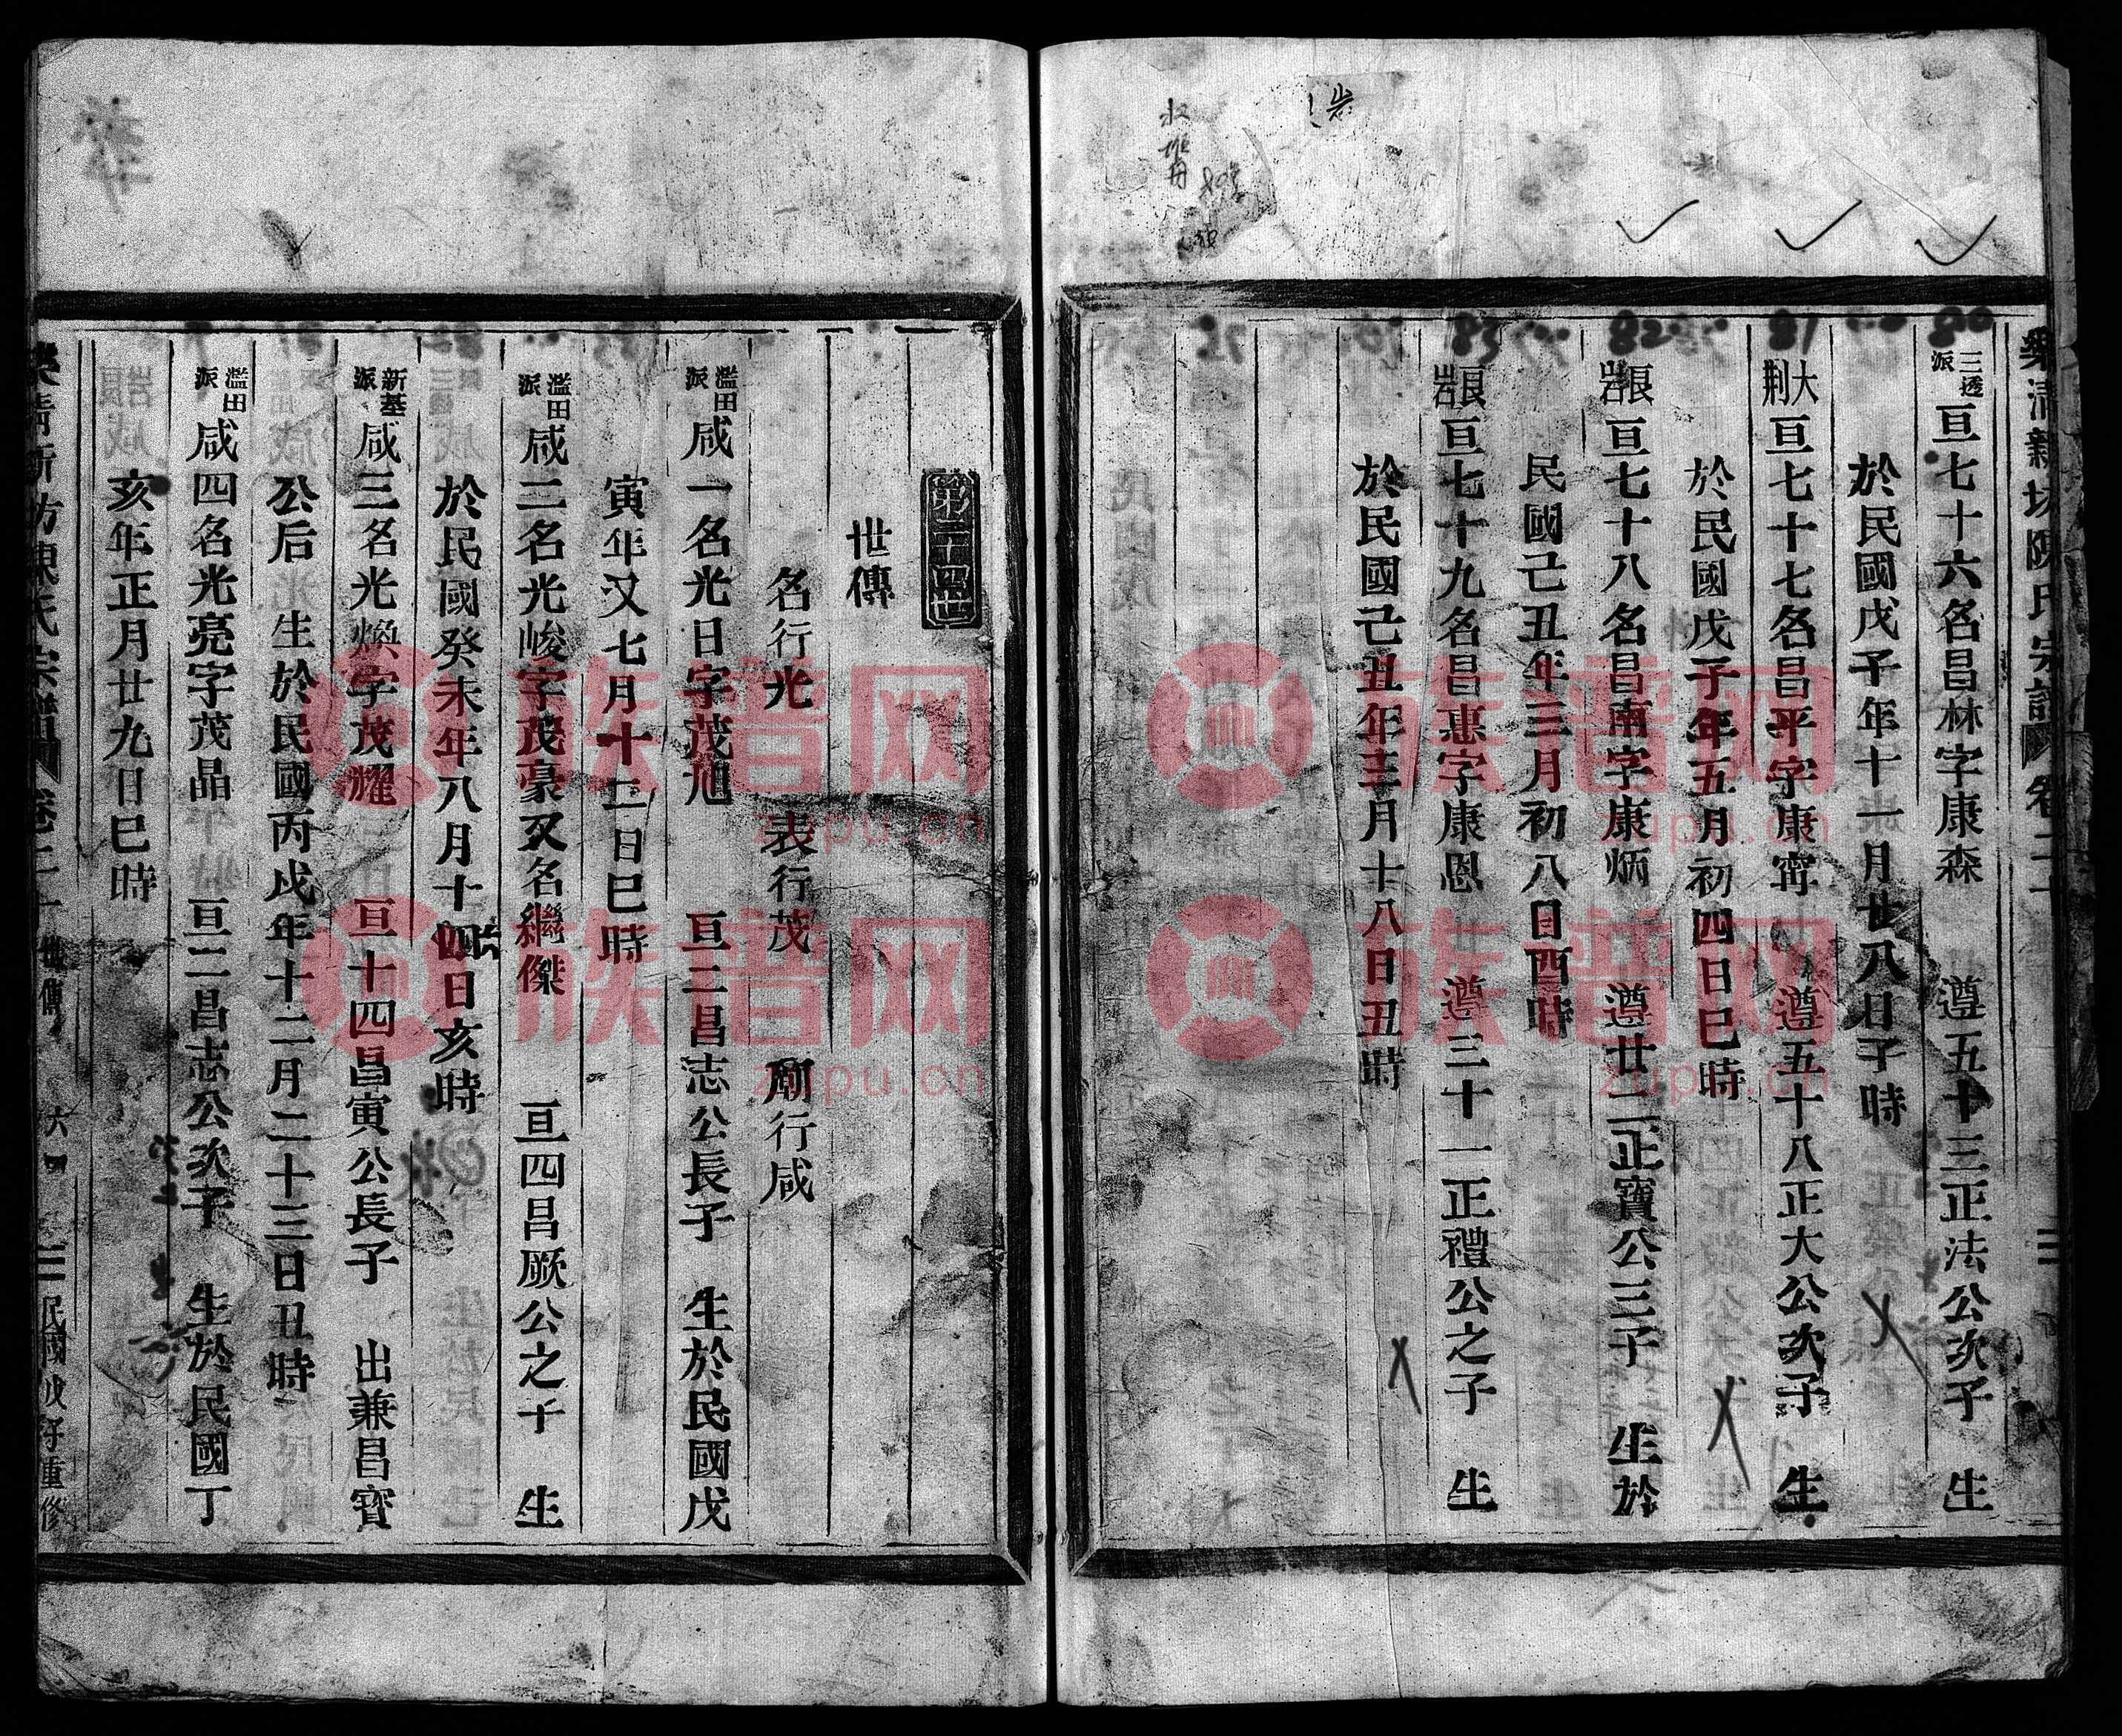 樂清新坊陳氏宗譜 卷二十
80
三透派 亘七十六名昌林字康森 遵五十三正法公次子 生
於民國戊子年十一月廿八日子時
81
大荆 亘七十七名昌平字康甯 遵五十八正大公次子 生
於民國戊子年五月初四日巳時
82
長岩 亘七十八名昌南字康炳 遵廿二正寶公三子 生於
民國己丑年三月初八日酉時
83
長岩 亘七十九名昌惠字康恩 遵三十一正禮公之子 生
於民國己丑年三月十八日丑時
第二十四世
世傳
名行光 表行茂 廟行咸
濫田派 咸一名光日字茂旭 亘二昌志公長子 生於民國戊
寅年又七月十二日巳時
濫田派 咸二名光峻字茂豪又名繼傑 亘四昌厥公之子 生
於民國癸未年八月十四日亥時
新基派 咸三名光煥字茂耀 亘十四昌寅公長子 出兼昌寶
公后 生於民國丙戌年十二月二十三日丑時
濫田派 咸四名光亮字茂晶 亘二昌志公次子 生於民國丁
亥年正月廿九日巳時
樂清新坊陳氏宗譜 卷二十 世傳 六四 民國戊子重修
族譜网
zupu.cn
族譜网
zupu.cn
族譜网
zupu.cn
族譜网
zupu.cn